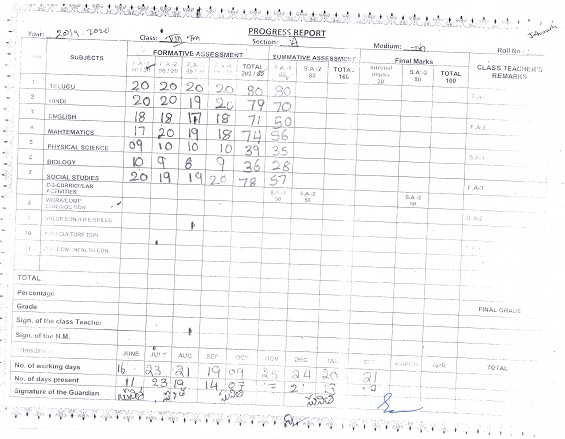 PROGRESS REPORT
Year: 2019-2020 Class: VIII TM Section: A Medium: Roll No:
SUBJECTS FORMATIVE ASSESSMENT SUMMATIVE ASSESSMENT Final Marks CLASS TEACHER'S REMARKS
F.A.-1 F.A.-2 F.A. F.A. TOTAL 200 / 80 S.A. S.A.-2 80 TOTAL 100 Internal marks 20 S.A.-3 80 TOTAL 100
1 TELUGU 20 20 20 20 80 80
2 HINDI 20 20 19 20 79 70
3 ENGLISH 18 18 17 18 71 50 F.A-2
4 MAHTEMATICS 17 20 19 18 74 56
5 PHYSICAL SCIENCE 09 10 10 10 39 35 S.A-1
6 BIOLOGY 10 9 8 9 36 28
7 SOCIAL STUDIES 20 19 19 20 78 57
CO-CURRICULAR ACTIVITIES S.A-1 50 S.A.-2 50 S.A.-3 50 F.A-3
8 WORK/COMP EDN/VOC EDN
9 VALUE EDN/LIFE SKILLS S.A-2
10 ART/CULTURE EDN
11 HEALTH EDN
TOTAL
Percentage
Grade FINAL GRADE
Sign. of the class Teacher
Sign. of the H.M.
JUNE JULY AUG SEP OCT NOV DEC JAN FEB MARCH APR TOTAL
No. of working days 16 23 21 19 09 25 24 20 21
No. of days present 11 23 19 14 07
Signature of the Guardian